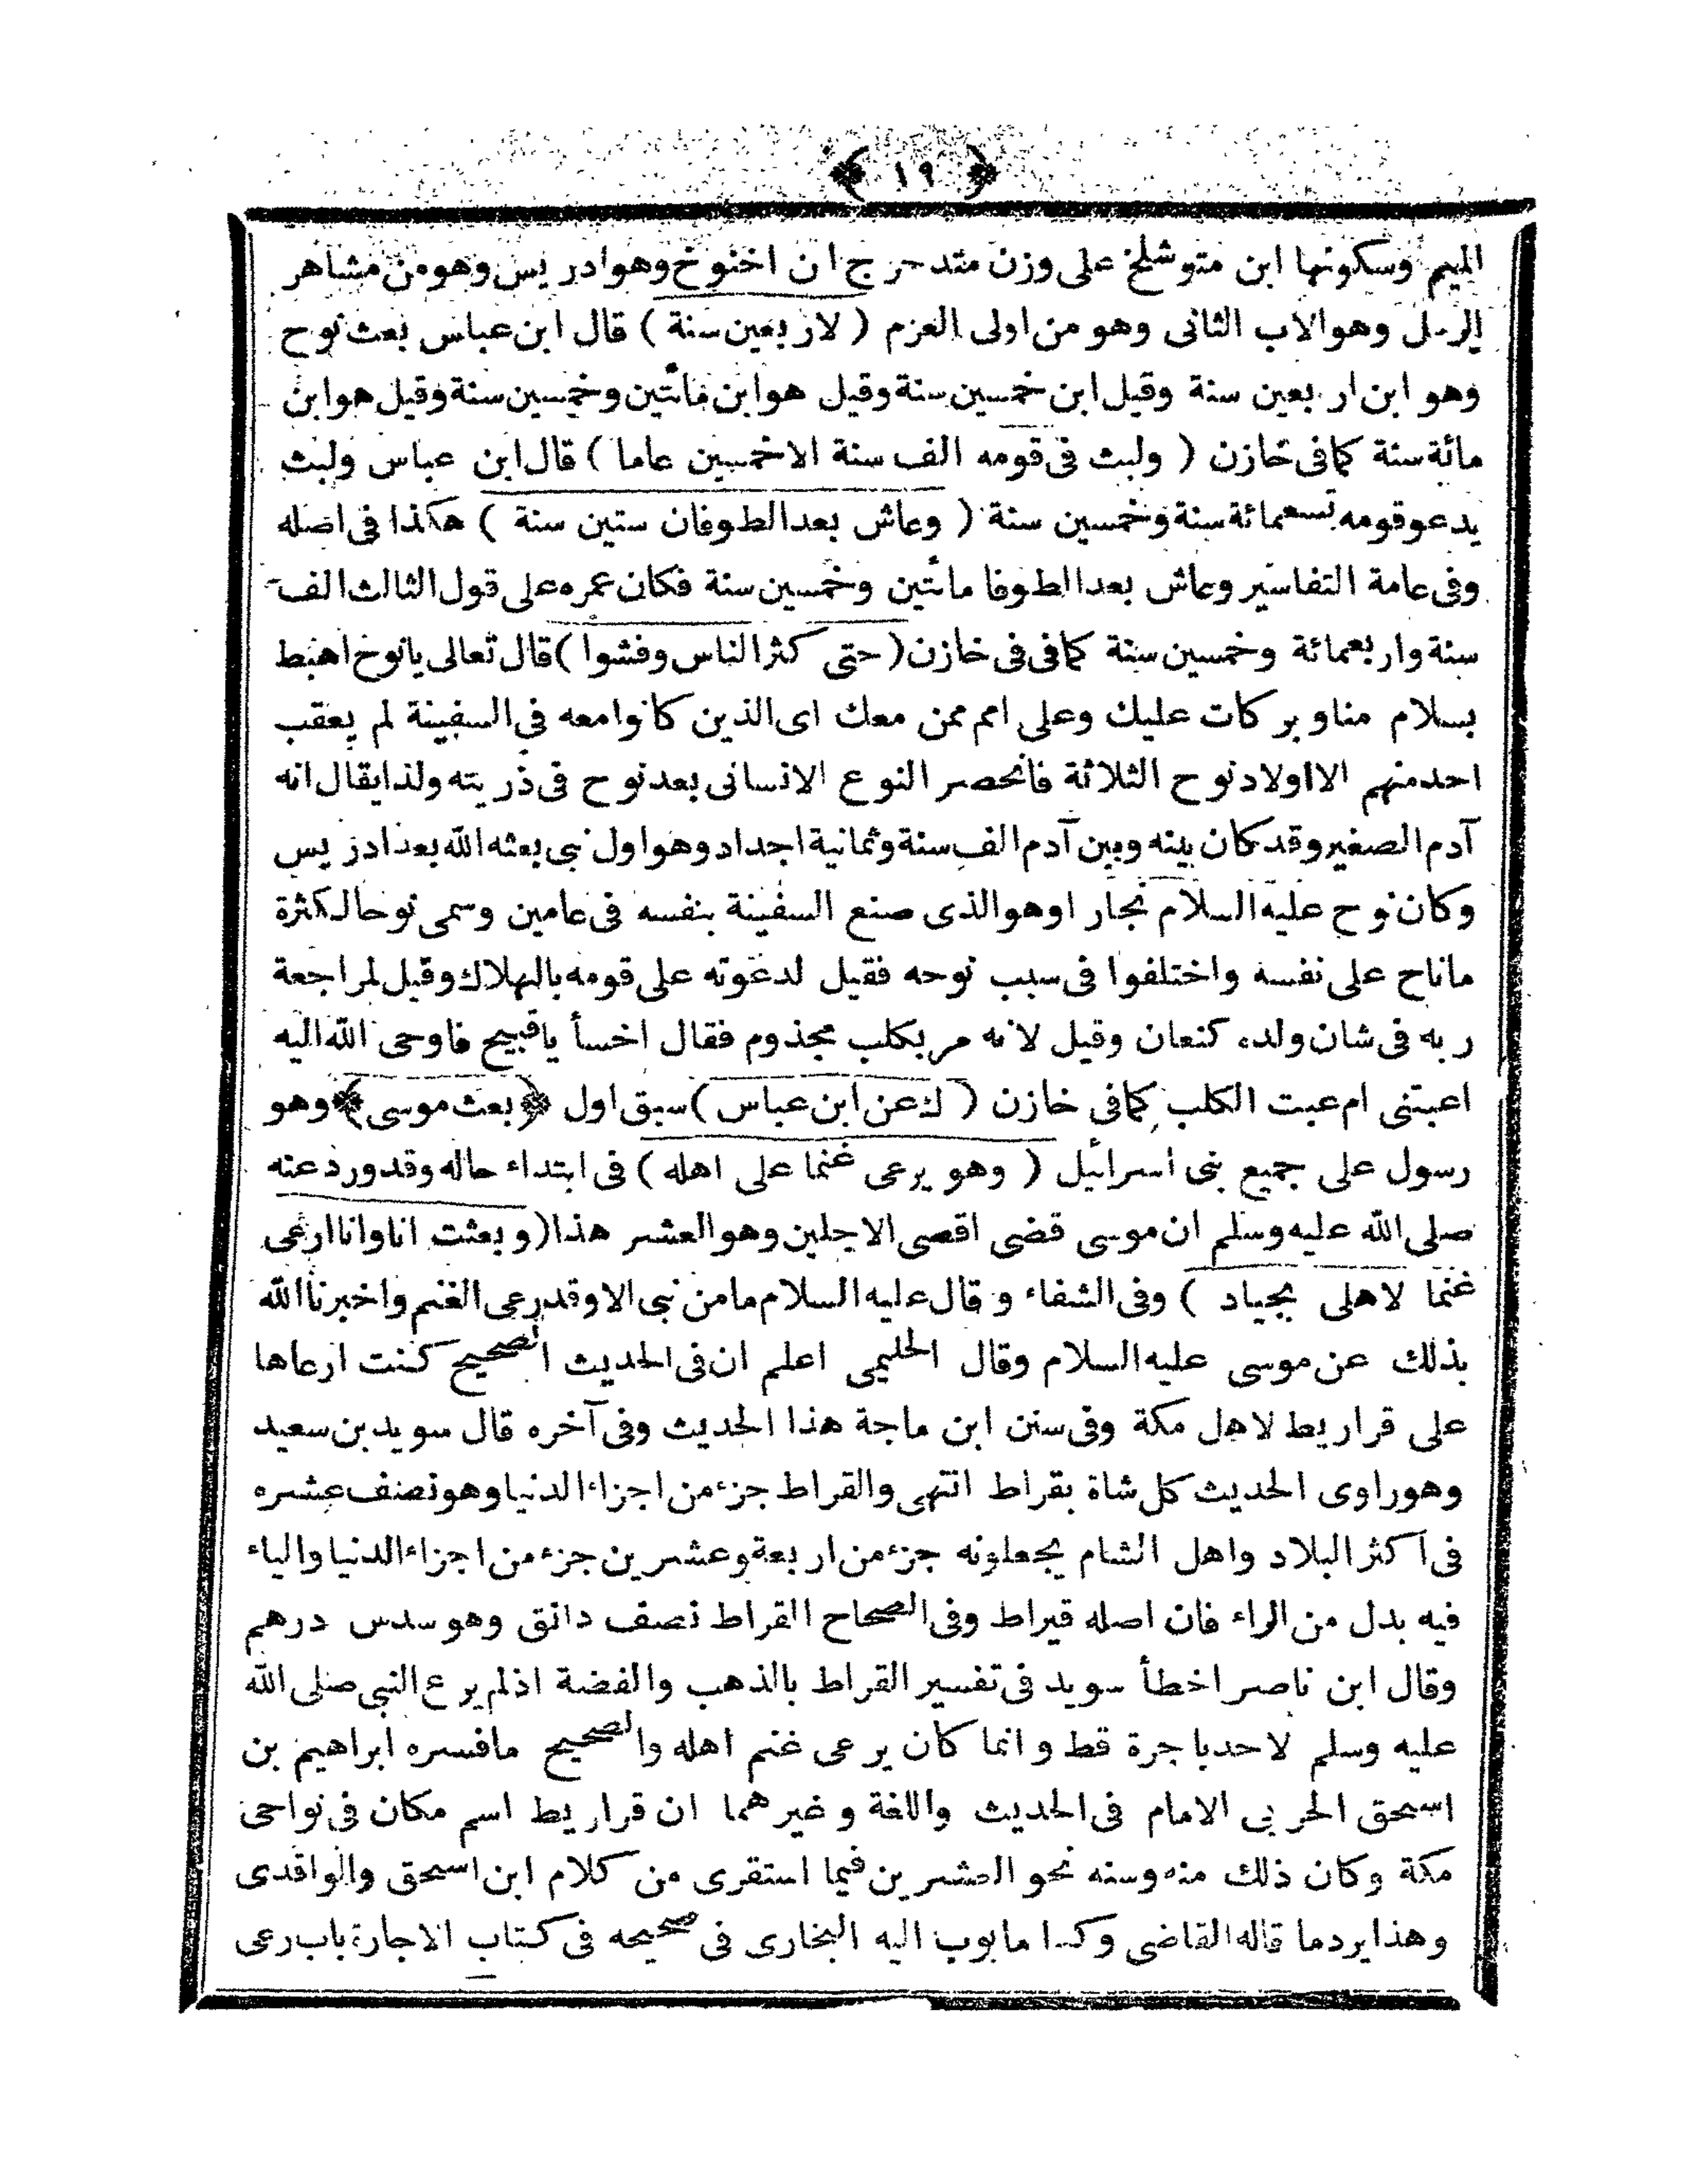 ﴿ ١٩ ﴾
الميم وسكونها ابن متوشلخ على وزن متدحرج ان اخنوخ وهو ادريس وهو من مشاهر
الرسل وهو الاب الثانى وهو من اولى العزم ( لاربعين سنة ) قال ابن عباس بعث نوح
وهو ابن اربعين سنة وقيل ابن خمسين سنة وقيل هو ابن مائتين وخمسين سنة وقيل هو ابن
مائة سنة كما فى خازن ( ولبث فى قومه الف سنة الا خمسين عاما ) قال ابن عباس ولبث
يدعو قومه تسعمائة سنة وخمسين سنة ( وعاش بعد الطوفان ستين سنة ) هكذا فى اصله
وفى عامة التفاسير وعاش بعد الطوفا مائتين وخمسين سنة فكان عمره على قول الثالث الف
سنة واربعمائة وخمسين سنة كما فى فى خازن ( حتى كثر الناس وفشوا ) قال تعالى يانوح اهبط
بسلام منا وبركات عليك وعلى امم ممن معك اى الذين كانوا معه فى السفينة لم يعقب
احد منهم الا اولاد نوح الثلاثة فانحصر النوع الانسانى بعد نوح فى ذريته ولذا يقال انه
آدم الصغير وقد كان بينه وبين آدم الف سنة وثمانية اجداد وهو اول نبى بعثه الله بعد ادريس
وكان نوح عليه السلام نجار ا وهو الذى صنع السفينة بنفسه فى عامين وسمى نوحا لكثرة
ماناح على نفسه واختلفوا فى سبب نوحه فقيل لدعوته على قومه بالهلاك وقيل لمراجعة
ربه فى شان ولده كنعان وقيل لانه مر بكلب مجذوم فقال اخسأ ياقبيح فاوحى الله اليه
اعبتنى ام عبت الكلب كما فى خازن ( ك عن ابن عباس ) سبق اول ﴿ بعث موسى ﴾ وهو
رسول على جميع بنى اسرائيل ( وهو يرعى غنما على اهله ) فى ابتداء حاله وقد ورد عنه
صلى الله عليه وسلم ان موسى قضى اقصى الاجلين وهو العشر هذا ( وبعثت انا وانا ارعى
غنما لاهلى بجياد ) وفى الشفاء وقال عليه السلام ما من نبى الا وقد رعى الغنم واخبرنا الله
بذلك عن موسى عليه السلام وقال الحليمى اعلم ان فى الحديث الصحيح كنت ارعاها
على قراريط لاهل مكة وفى سنن ابن ماجة هذا الحديث وفى آخره قال سويد بن سعيد
وهو راوى الحديث كل شاة بقراط انتهى والقراط جزء من اجزاء الدنيا وهو نصف عشره
فى اكثر البلاد واهل الشام يجعلونه جزء من اربعة وعشرين جزء من اجزاء الدنيا والياء
فيه بدل من الراء فان اصله قيراط وفى الصحاح القراط نصف دانق وهو سدس درهم
وقال ابن ناصر اخطأ سويد فى تفسير القراط بالذهب والفضة اذ لم يرع النبى صلى الله
عليه وسلم لاحد باجرة قط وانما كان يرعى غنم اهله والصحيح ما فسره ابراهيم بن
اسحق الحربى الامام فى الحديث واللغة وغيرهما ان قراريط اسم مكان فى نواحى
مكة وكان ذلك منه وسنه نحو العشرين فيما استقرى من كلام ابن اسحق والواقدى
وهذا يرد ما قاله القاضى وكذا ما بوب اليه البخارى فى صحيحه فى كتاب الاجارة باب رعى